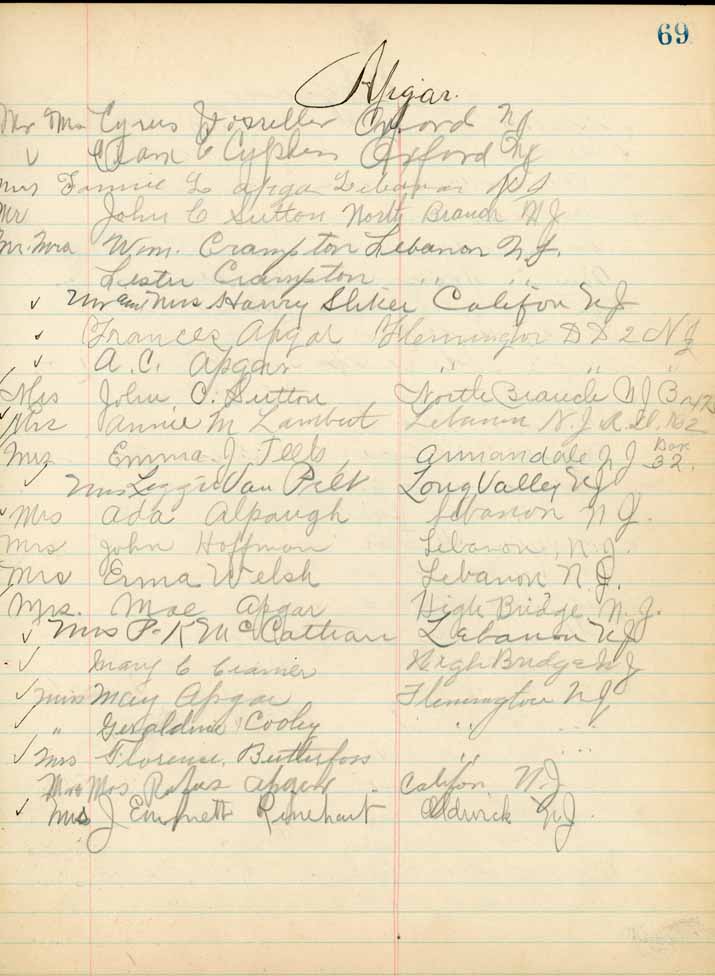 69
Apgar.
Mr Mrs Cyrus Vosseller Oxford NJ
✓ Clara C Cyphers Oxford NJ
Mrs Fannie L Apgar Lebanon NJ
Mr John C Sutton North Branch NJ
Mr. Mrs Wm. Crampton Lebanon N.J.
Lester Crampton " "
✓ Mr and Mrs Harry Sliker Califon NJ
✓ Frances Apgar Flemington 2 NJ
✓ A. C. Apgar " " "
Mrs John C. Sutton North Branch NJ B
✓ Mrs Annie M Lambert Lebanon N.J. R.D. No 2
Mrs Emma J. Annandale NJ Box 32.
✓ Mrs Lizzie Van Pelt Long Valley NJ
✓ Mrs Ada Alpaugh Lebanon N J.
Mrs John Hoffman Lebanon, N.J.
Mrs Erma Welsh Lebanon N.J.
Mrs. Mae Apgar High Bridge N. J.
✓ Mrs P. K Mc Lebanon NJ
✓ Mary C Cramer High Bridge NJ
✓ Miss May Apgar Flemington NJ
✓ " Geraldine Cooley " "
✓ Mrs Florence Butterfoss " "
Mr & Mrs Rufus Apgar. Califon N.J
✓ Mrs J Emmett Rinehart Oldwick N.J.